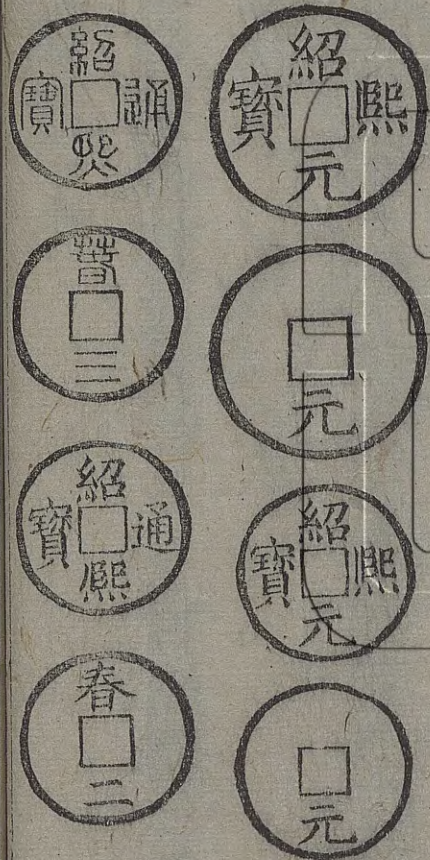 紹熙元寶
元
紹熙元寶
元
紹熙通寶
春三
紹熙通寶
春二